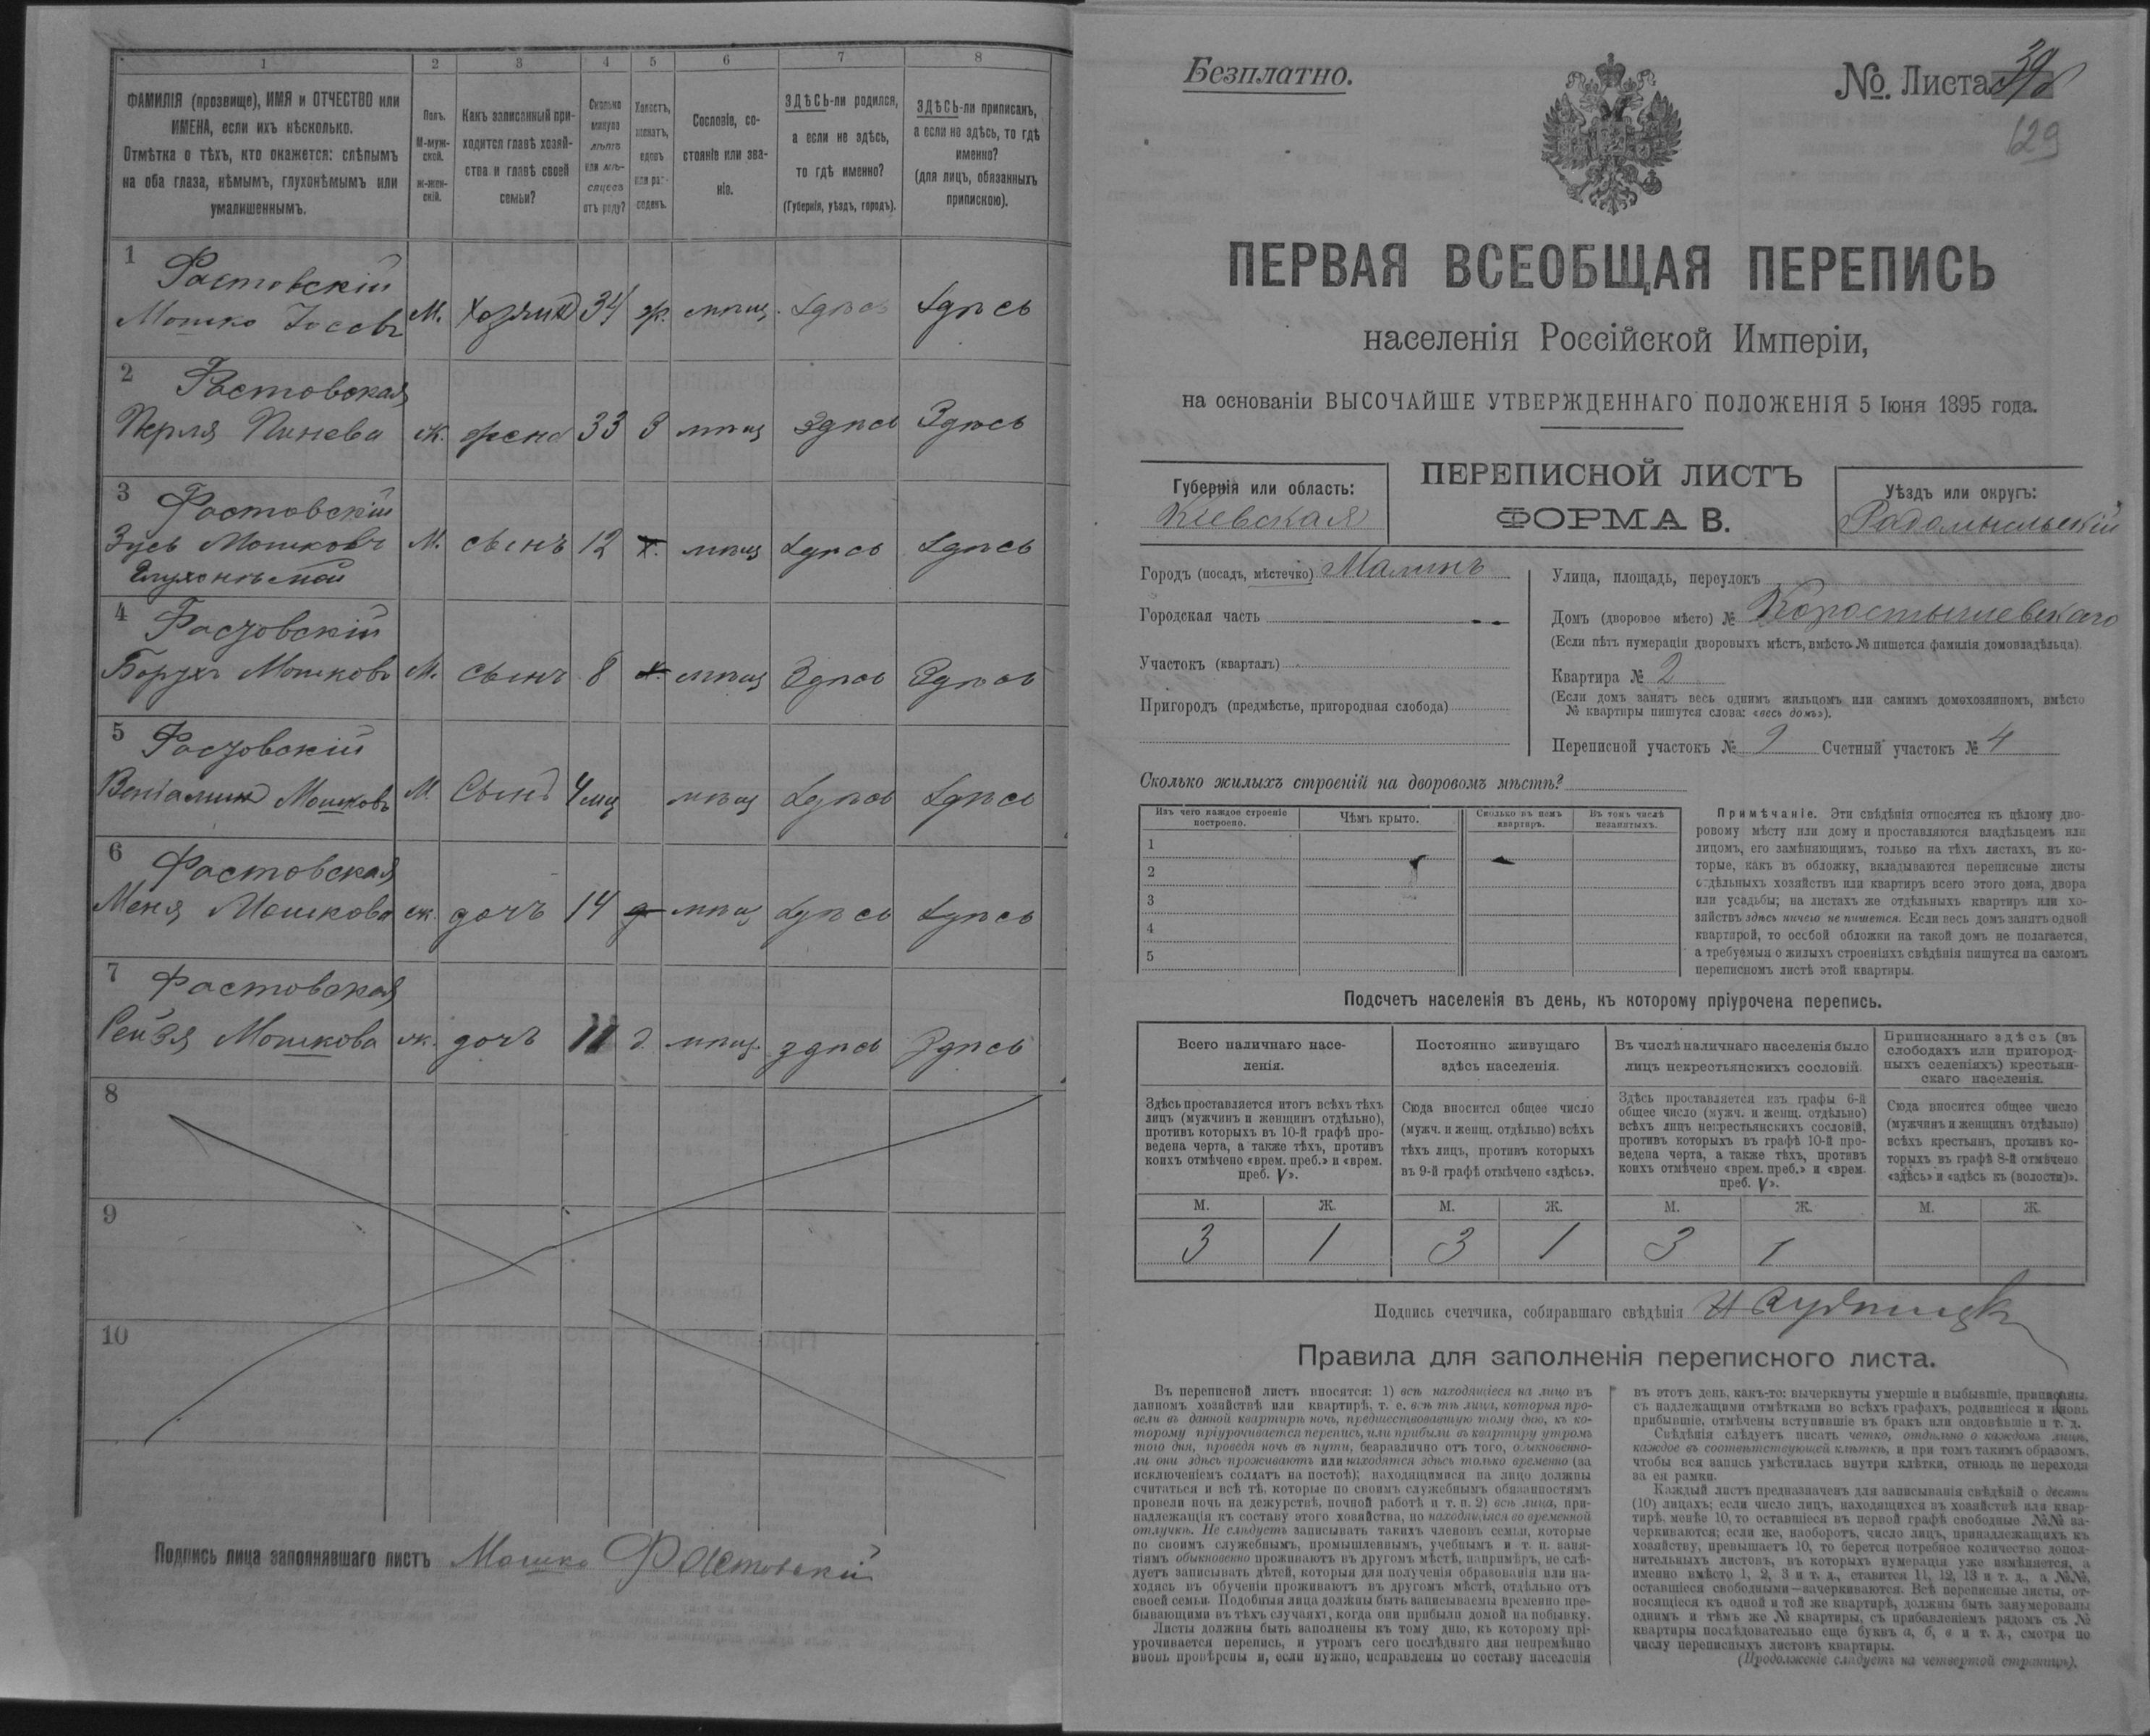 1 2 3 4 5 6 7 8
ФАМИЛІЯ (прозвище), ИМЯ и ОТЧЕСТВО или
ИМЕНА, если ихъ нѣсколько.
Отмѣтка о тѣхъ, кто окажется: слѣпымъ
на оба глаза, нѣмымъ, глухонѣмымъ или
умалишеннымъ.
Полъ.
М-муж-
ской.
ж-жен-
скій.
Какъ записанный при-
ходится главѣ хозяй-
ства и главѣ своей
семьи?
Сколько
минуло
лѣтъ
или мѣ-
сяцевъ
отъ роду?
Холостъ,
женатъ,
вдовъ
или раз-
веденъ.
Сословіе, со-
стояніе или зва-
ніе.
ЗДѢСЬ-ли родился,
а если не здѣсь,
то гдѣ именно?
(Губернія, уѣздъ, городъ).
ЗДѢСЬ-ли приписанъ,
а если не здѣсь, то гдѣ
именно?
(для лицъ, обязанныхъ
припискою).
1 Фастовскій
Мошко Іосевъ М. хозяинъ 34 ж. мѣщ. здѣсь здѣсь
2 Фастовская
Перля Пинева ж. жена 33 З мѣщ здѣсь Здѣсь
3 Фастовскій
Зусь Мошковъ М. сынъ 12 х. мѣщ здѣсь здѣсь
Глухонѣмой
4 Фастовскій
Борухъ Мошковъ М. сынъ 8 х. мѣщ Здѣсь Здѣсь
5 Фастовскій
Веніаминъ Мошковъ М Сынъ 4 мѣц мѣщ здѣсь здѣсь
6 Фастовская
Меня Мошкова ж. дочь 14 д мѣщ здѣсь здѣсь
7 Фастовская
Рейзя Мошкова ж. дочь 11 д мѣщ. здѣсь Здѣсь
8
9
10
Подпись лица заполнявшаго листъ Мошко Фастовскій
Безплатно.
№. Листа 39
129
ПЕРВАЯ ВСЕОБЩАЯ ПЕРЕПИСЬ
населенія Россійской Имперіи,
на основаніи ВЫСОЧАЙШЕ УТВЕРЖДЕННАГО ПОЛОЖЕНІЯ 5 Іюня 1895 года.
Губернія или область:
Кіевская
ПЕРЕПИСНОЙ ЛИСТЪ
ФОРМА В.
Уѣздъ или округъ:
Радомысльскій
Городъ (посадъ, мѣстечко) Малинъ
Городская часть
Участокъ (кварталъ)
Пригородъ (предмѣстье, пригородная слобода)
Улица, площадь, переулокъ
Домъ (дворовое мѣсто) № Коростышевскаго
(Если нѣтъ нумераціи дворовыхъ мѣстъ, вмѣсто № пишется фамилія домовладѣльца)
Квартира № 2
(Если домъ занятъ весь однимъ жильцомъ или самимъ домохозяиномъ, вмѣсто
№ квартиры пишутся слова: «весь домъ»).
Переписной участокъ № 9 Счетный участокъ № 4
Сколько жилыхъ строеній на дворовомъ мѣстѣ?
Изъ чего каждое строеніе
построено.
Чѣмъ крыто.
Сколько въ немъ
квартиръ.
Въ томъ числѣ
незанятыхъ.
1
2
3
4
5
Примѣчаніе. Эти свѣдѣнія относятся къ цѣлому дво-
ровому мѣсту или дому и проставляются владѣльцемъ или
лицомъ, его замѣняющимъ, только на тѣхъ листахъ, въ ко-
торые, какъ въ обложку, вкладываются переписные листы
отдѣльныхъ хозяйствъ или квартиръ всего этого дома, двора
или усадьбы; на листахъ же отдѣльныхъ квартиръ или хо-
зяйствъ здѣсь ничего не пишется. Если весь домъ занятъ одной
квартирой, то особой обложки на такой домъ не полагается,
а требуемыя о жилыхъ строеніяхъ свѣдѣнія пишутся на самомъ
переписномъ листѣ этой квартиры.
Подсчетъ населенія въ день, къ которому пріурочена перепись.
Всего наличнаго насе-
ленія.
Постоянно живущаго
здѣсь населенія.
Въ числѣ наличнаго населенія было
лицъ некрестьянскихъ сословій.
Приписаннаго здѣсь (въ
слободахъ или пригород-
ныхъ селеніяхъ) крестьян-
скаго населенія.
Здѣсь проставляется итогъ всѣхъ тѣхъ
лицъ (мужчинъ и женщинъ отдѣльно),
противъ которыхъ въ 10-й графѣ про-
ведена черта, а также тѣхъ, противъ
коихъ отмѣчено «врем. преб.» и «врем.
преб. V».
Сюда вносится общее число
(мужч. и женщ. отдѣльно) всѣхъ
тѣхъ лицъ, противъ которыхъ
въ 9-й графѣ отмѣчено «здѣсь».
Здѣсь проставляется изъ графы 6-й
общее число (мужч. и женщ. отдѣльно)
всѣхъ лицъ некрестьянскихъ сословій,
противъ которыхъ въ графѣ 10-й про-
ведена черта, а также тѣхъ, противъ
коихъ отмѣчено «врем. преб.» и «врем.
преб. V».
Сюда вносится общее число
(мужчинъ и женщинъ отдѣльно)
всѣхъ крестьянъ, противъ ко-
торыхъ въ графѣ 8-й отмѣчено
«здѣсь» и «здѣсь къ (волости)».
М. Ж. М. Ж. М. Ж. М. Ж.
3 1 3 1 3 1
Подпись счетчика, собиравшаго свѣдѣнія
Правила для заполненія переписного листа.
Въ переписной листъ вносятся: 1) всѣ находящіеся на лицо въ
данномъ хозяйствѣ или квартирѣ, т. е. всѣ тѣ лица, которыя про-
вели въ данной квартирѣ ночь, предшествовавшую тому дню, къ ко-
торому пріурочивается перепись, или прибыли въ квартиру утромъ
того дня, проведя ночь въ пути, безразлично отъ того, обыкновенно-
ли они здѣсь проживаютъ или находятся здѣсь только временно (за
исключеніемъ солдатъ на постоѣ); находящимися на лицо должны
считаться и всѣ тѣ, которые по своимъ служебнымъ обязанностямъ
провели ночь на дежурствѣ, ночной работѣ и т. п. 2) всѣ лица, при-
надлежащія къ составу этого хозяйства, но находящіяся во временной
отлучкѣ. Не слѣдуетъ записывать такихъ членовъ семьи, которые
по своимъ служебнымъ, промышленнымъ, учебнымъ и т. п. заня-
тіямъ обыкновенно проживаютъ въ другомъ мѣстѣ, напримѣръ, не слѣ-
дуетъ записывать дѣтей, которыя для полученія образованія или на-
ходясь въ обученіи проживаютъ въ другомъ мѣстѣ, отдѣльно отъ
своей семьи. Подобныя лица должны быть записываемы временно пре-
бывающими въ тѣхъ случаяхъ, когда они прибыли домой на побывку.
Листы должны быть заполнены къ тому дню, къ которому прі-
урочивается перепись, и утромъ сего послѣдняго дня непремѣнно
вновь провѣрены и, если нужно, исправлены по составу населенія
въ этотъ день, какъ-то: вычеркнуты умершіе и выбывшіе, приписаны,
съ надлежащими отмѣтками во всѣхъ графахъ, родившіеся и вновь
прибывшіе, отмѣчены вступившіе въ бракъ или овдовѣвшіе и т. д.
Свѣдѣнія слѣдуетъ писать четко, отдѣльно о каждомъ лицѣ,
каждое въ соотвѣтствующей клѣткѣ, и при томъ такимъ образомъ,
чтобы вся запись умѣстилась внутри клѣтки, отнюдь не переходя
за ея рамки.
Каждый листъ предназначенъ для записыванія свѣдѣній о десяти
(10) лицахъ; если число лицъ, находящихся въ хозяйствѣ или квар-
тирѣ, менѣе 10, то оставшіеся въ первой графѣ свободные №№ за-
черкиваются; если же, наоборотъ, число лицъ, принадлежащихъ къ
хозяйству, превышаетъ 10, то берется потребное количество допол-
нительныхъ листовъ, въ которыхъ нумерація уже измѣняется, а
именно вмѣсто 1, 2, 3 и т. д., ставится 11, 12, 13 и т. д., а №№,
оставшіеся свободными—зачеркиваются. Всѣ переписные листы, от-
носящіеся къ одной и той же квартирѣ, должны быть занумерованы
однимъ и тѣмъ же № квартиры, съ прибавленіемъ рядомъ съ №
квартиры послѣдовательно еще буквъ а, б, в и т. д., смотря по
числу переписныхъ листовъ квартиры.
(Продолженіе слѣдуетъ на четвертой страницѣ).